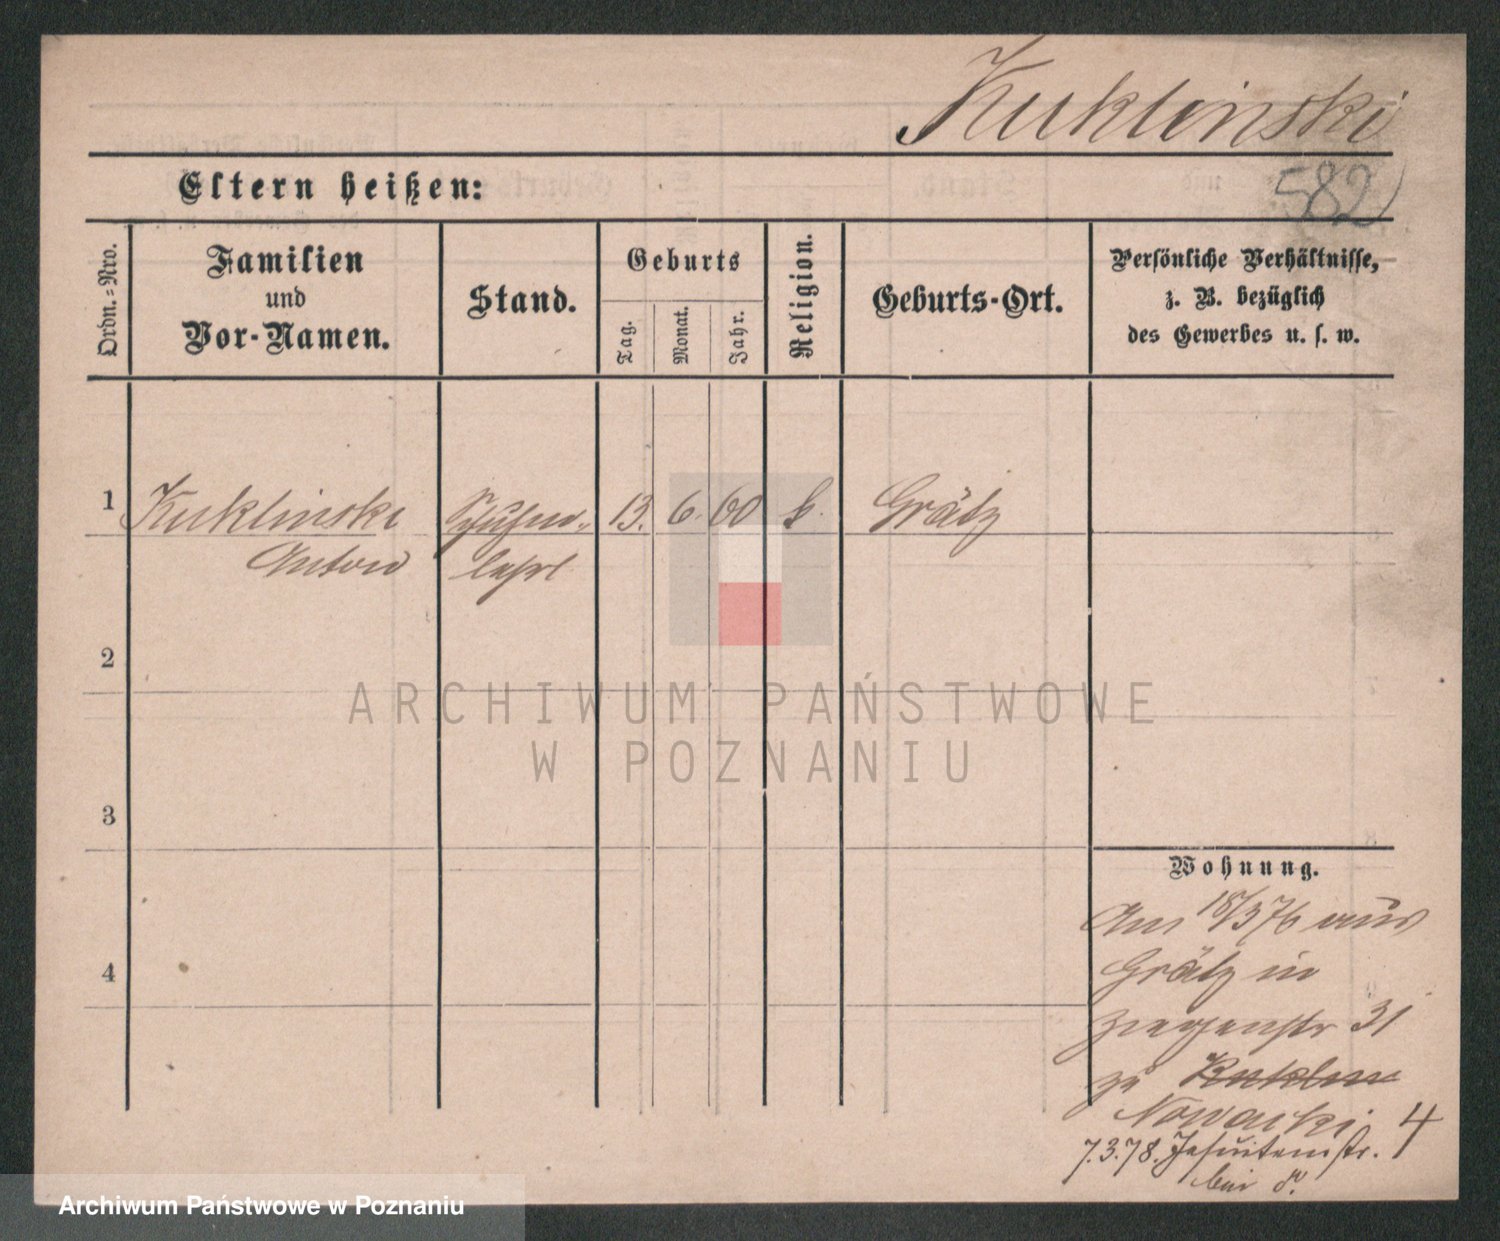 Kuklinski
582
Eltern heißen:
Ordn.=Nro.
Familien
und
Vor-Namen.
Stand.
Geburts
Tag.
Monat.
Jahr.
Religion.
Geburts-Ort.
Persönliche Verhältnisse,
z. B. bezüglich
des Gewerbes u. s. w.
1
Kuklinski
Anton
Schuhm.
lehrl
13.
6.
60
k.
Grätz
2
3
4
Wohnung.
Am 18/3 76 aus
Grätz in
Ziegenstr 31
zu Kuklin
Nowacki
7.3.78. Jesuitenstr. 4
bei d.
ARCHIWUM PAŃSTWOWE
W POZNANIU
Archiwum Państwowe w Poznaniu